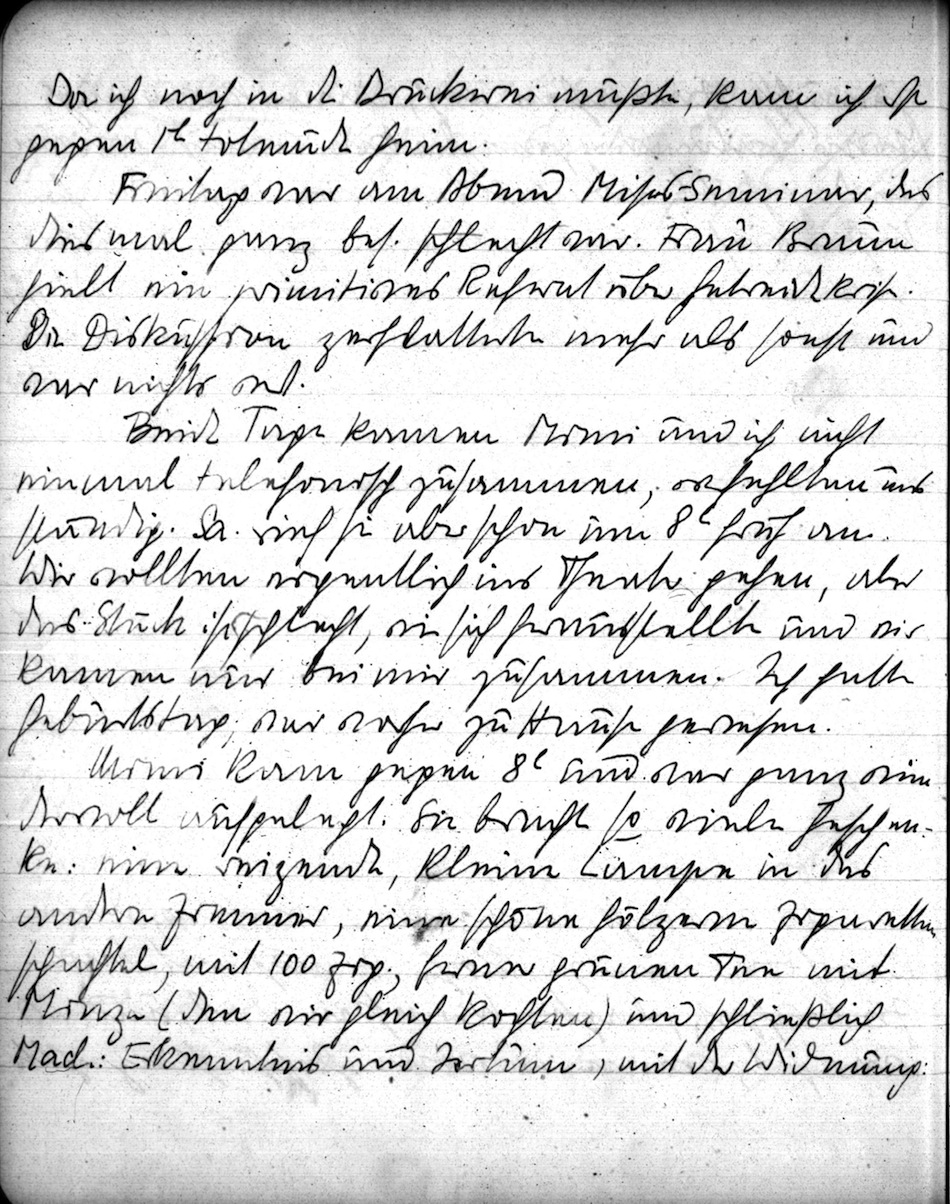 Da ich noch in die Druckerei mußte, kam ich erst
gegen 1h todmüde heim.
Freitag war am Abend Mises-Seminar, das
diesmal ganz bes. schlecht war. Frau Braun
hielt ein primitives Referat über Getreidekrise.
Die Diskussion zerflatterte mehr als sonst und
war nichts wert.
Beide Tage kamen Mimi und ich nicht
einmal telefonisch zusammen, wir fehlten uns
ständig. Sa. rief sie aber schon um 8h früh an.
Wir wollten eigentlich ins Theater gehen, aber
das Stück ist schlecht, wie sich herausstellte und wir
kamen nur bei mir zusammen. Ich hatte
Geburtstag, war vorher zu Hause gewesen.
Mimi kam gegen 8h und war ganz wun-
dervoll aufgelegt. Sie brachte so viele Geschen-
ke: eine reizende, kleine Lampe in das
andere Zimmer, eine schöne hölzerne Zigaretten
schachtel, mit 100 Zig., ferner grünen Tee mit
Minze (den wir gleich kochten) und schließlich
Mach: Erkenntnis und Irrtum, mit der Widmung: